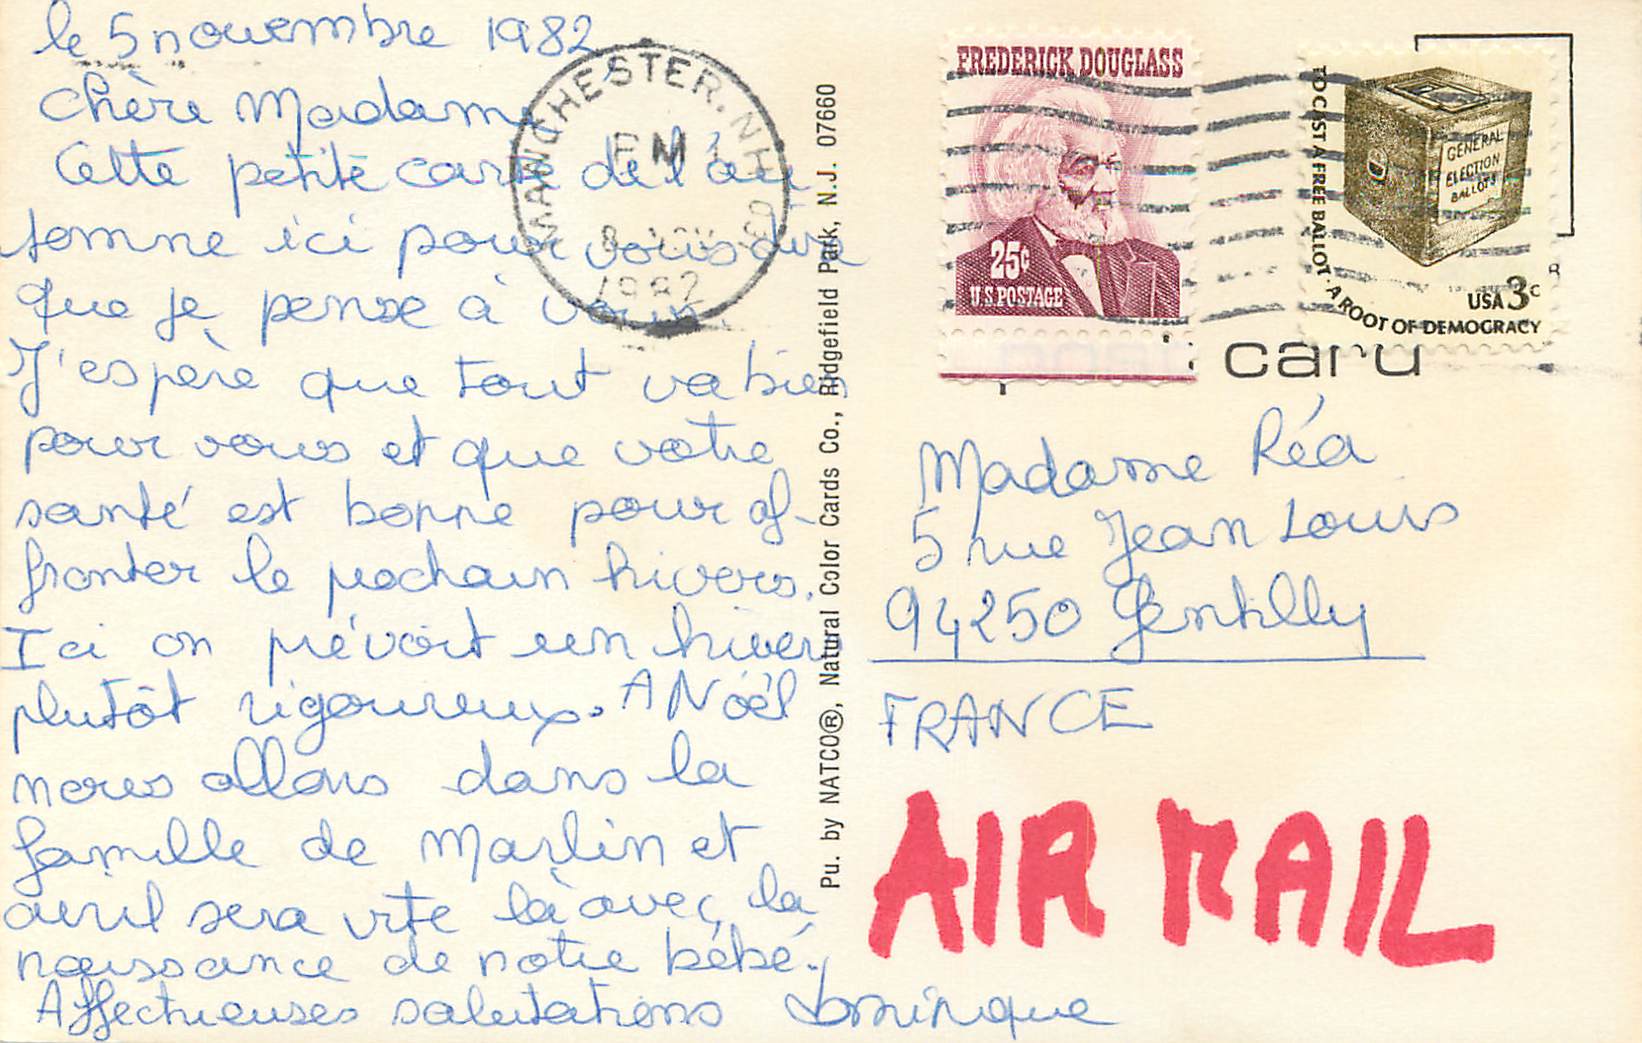 le 5 novembre 1982
Chère Madame
Cette petite carte de l'au
tomne ici pour vous dire
que je pense à vous.
J'espère que tout va bien
pour vous et que votre
santé est bonne pour af-
fronter le prochain hivers.
Ici on prévoit un hivers
plutôt rigoureux. A Noël
nous allons dans la
famille de Marlin et
avril sera vite là avec la
naissance de notre bébé.
Affectueuses salutations Dominique
MANCHESTER, NH
PM
8
1982
Pu. by NATCO®, Natural Color Cards Co., Ridgefield Park, N.J. 07660
FREDERICK DOUGLASS
25¢
U.S. POSTAGE
TO CAST A FREE BALLOT · A ROOT OF DEMOCRACY
GENERAL
ELECTION
BALLOTS
USA 3c
card
Madame Réa
5 rue Jean Louis
94250 Gentilly
FRANCE
AIR MAIL